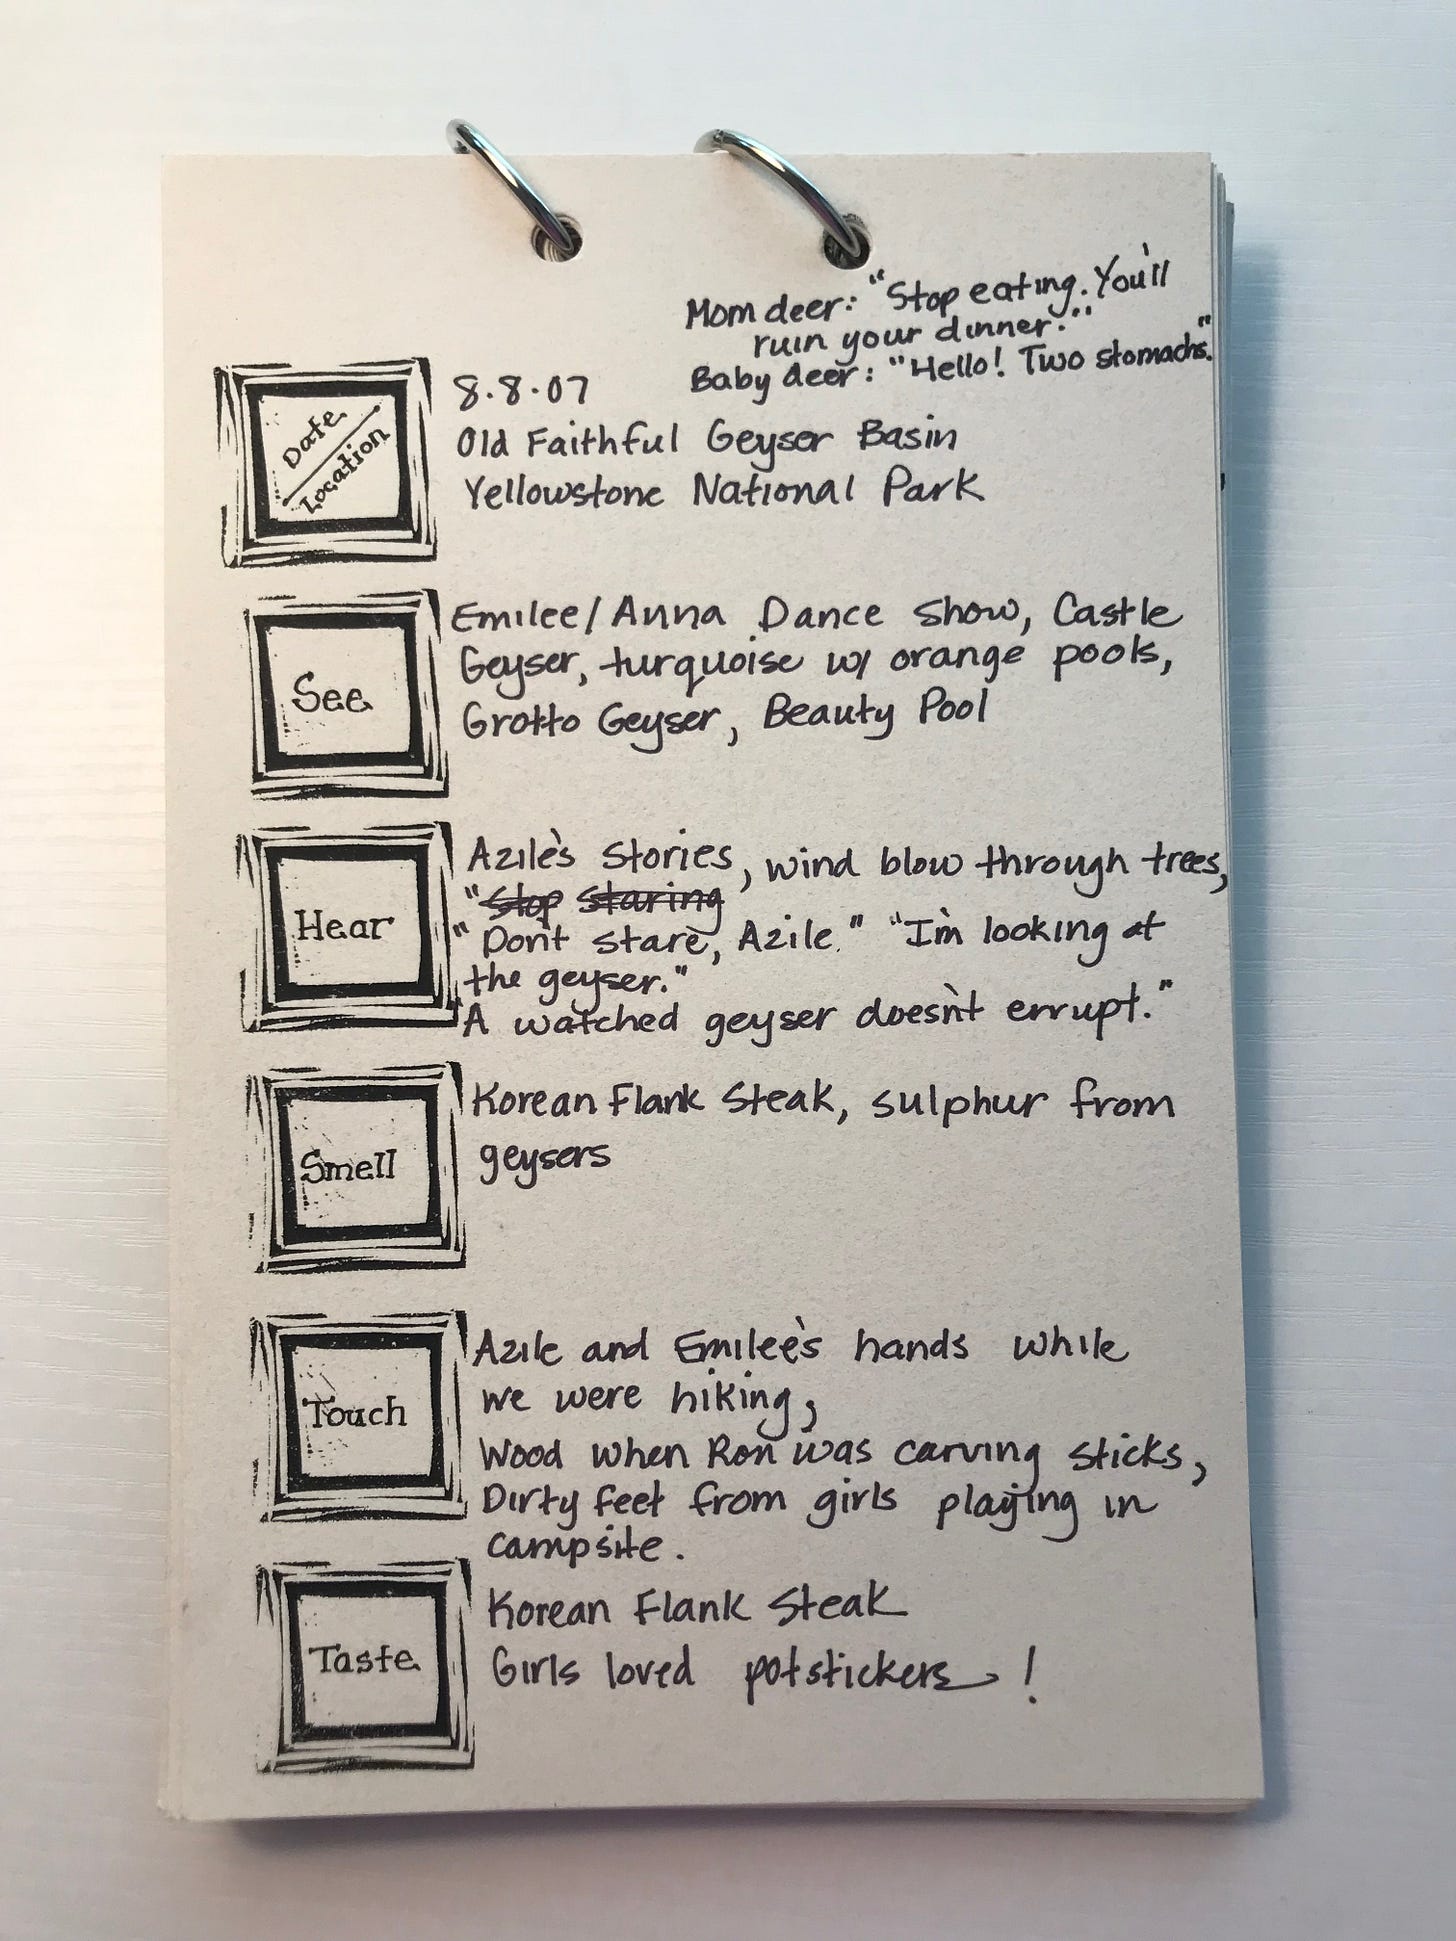 Mom deer: "Stop eating. You'll
ruin your dinner."
Baby deer: "Hello! Two stomachs."
Date
Location
8.8.07
Old Faithful Geyser Basin
Yellowstone National Park
See
Emilee/Anna Dance Show, Castle
Geyser, turquoise w/ orange pools,
Grotto Geyser, Beauty Pool
Hear
Azile's Stories, wind blow through trees,
"Stop staring
"Don't stare, Azile." "I'm looking at
the geyser."
"A watched geyser doesn't errupt."
Smell
Korean Flank Steak, sulphur from
geysers
Touch
Azile and Emilee's hands while
we were hiking,
Wood when Ron was carving sticks,
Dirty feet from girls playing in
campsite.
Taste
Korean Flank Steak
Girls loved potstickers!